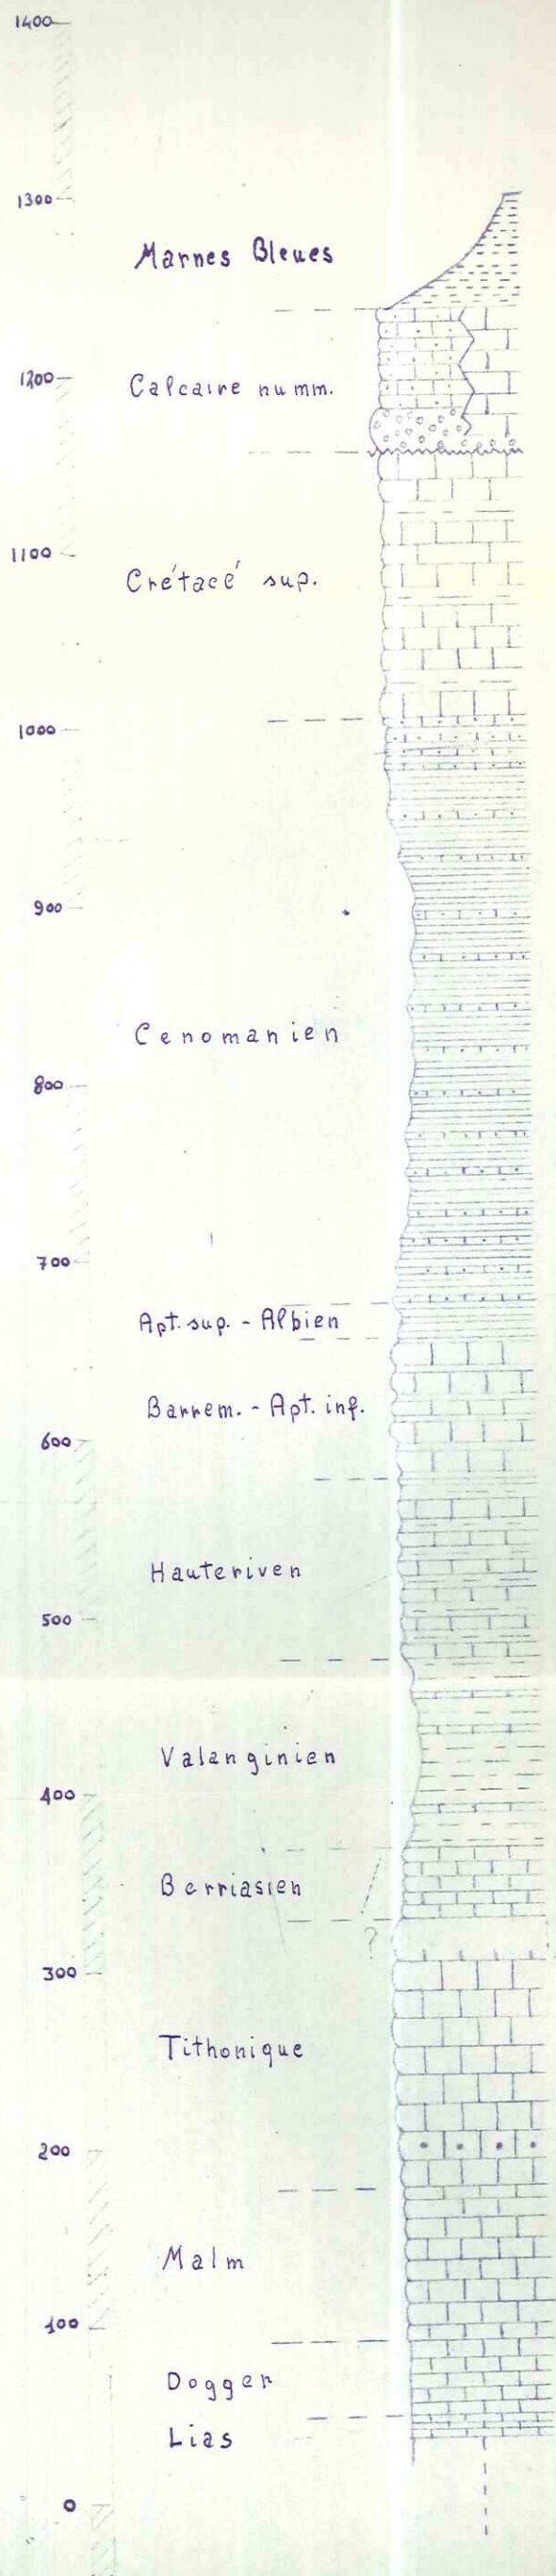 1400
1300
Marnes Bleues
1200
Calcaire numm.
1100
Crétacé sup.
1000
900
Cenomanien
800
700
Apt. sup. - Albien
Barrem. - Apt. inf.
600
Hauteriven
500
Valanginien
400
Berriasien
?
300
Tithonique
200
Malm
100
Dogger
Lias
0